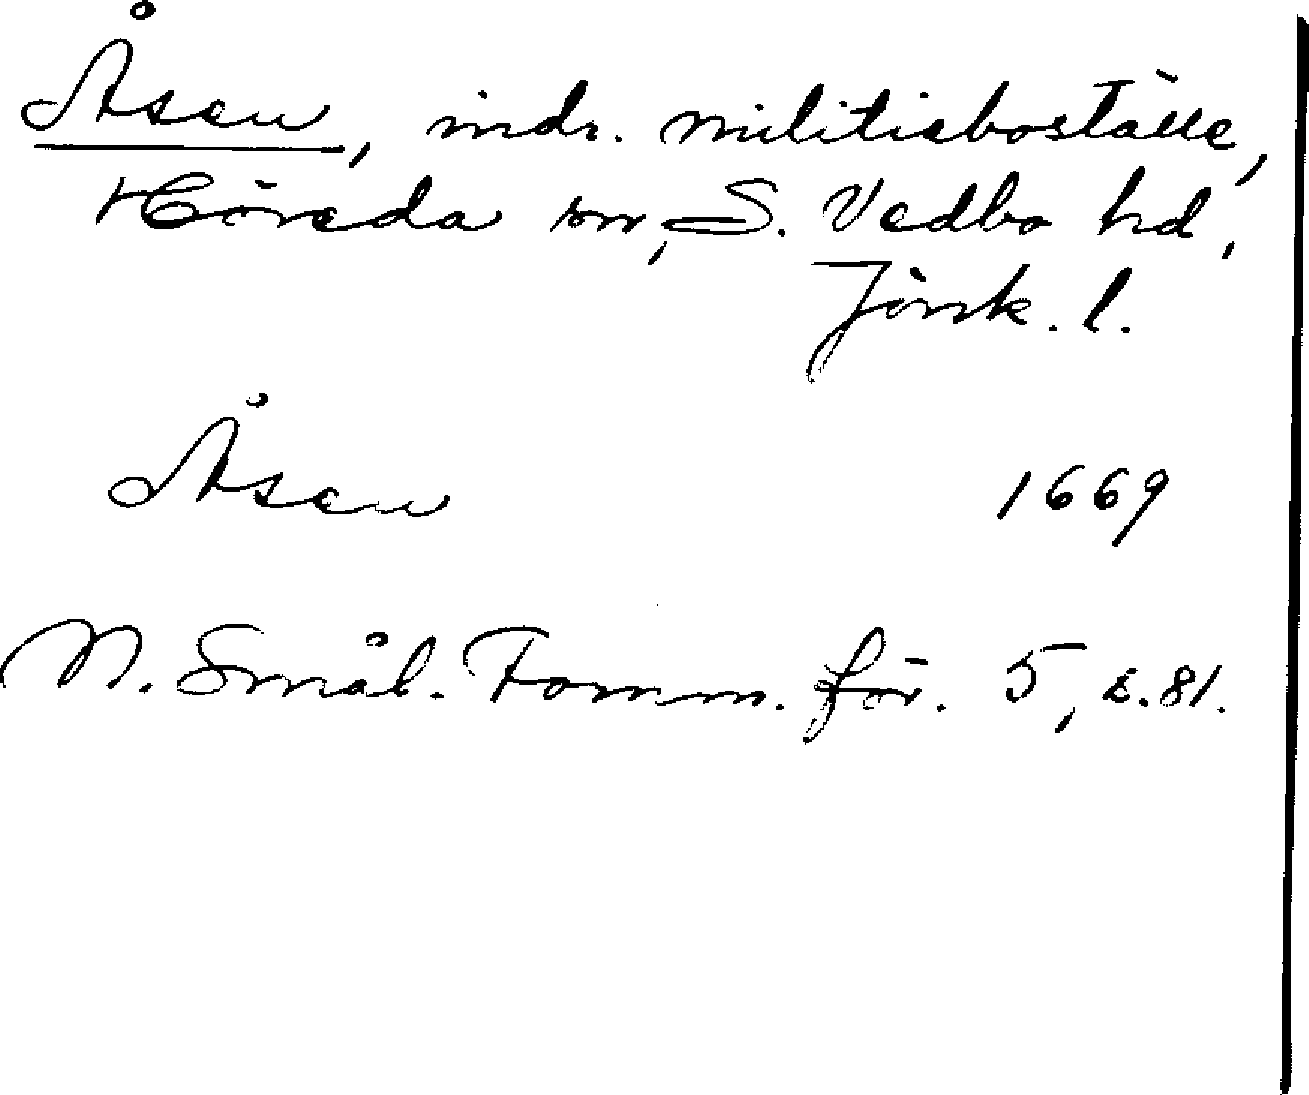 Åsen, indr. militieboställe,
Höreda sn, S. Vedbo hd,
Jönk. l.
Åsen 1669
N. Smål. Fornm. för. 5, s. 81.